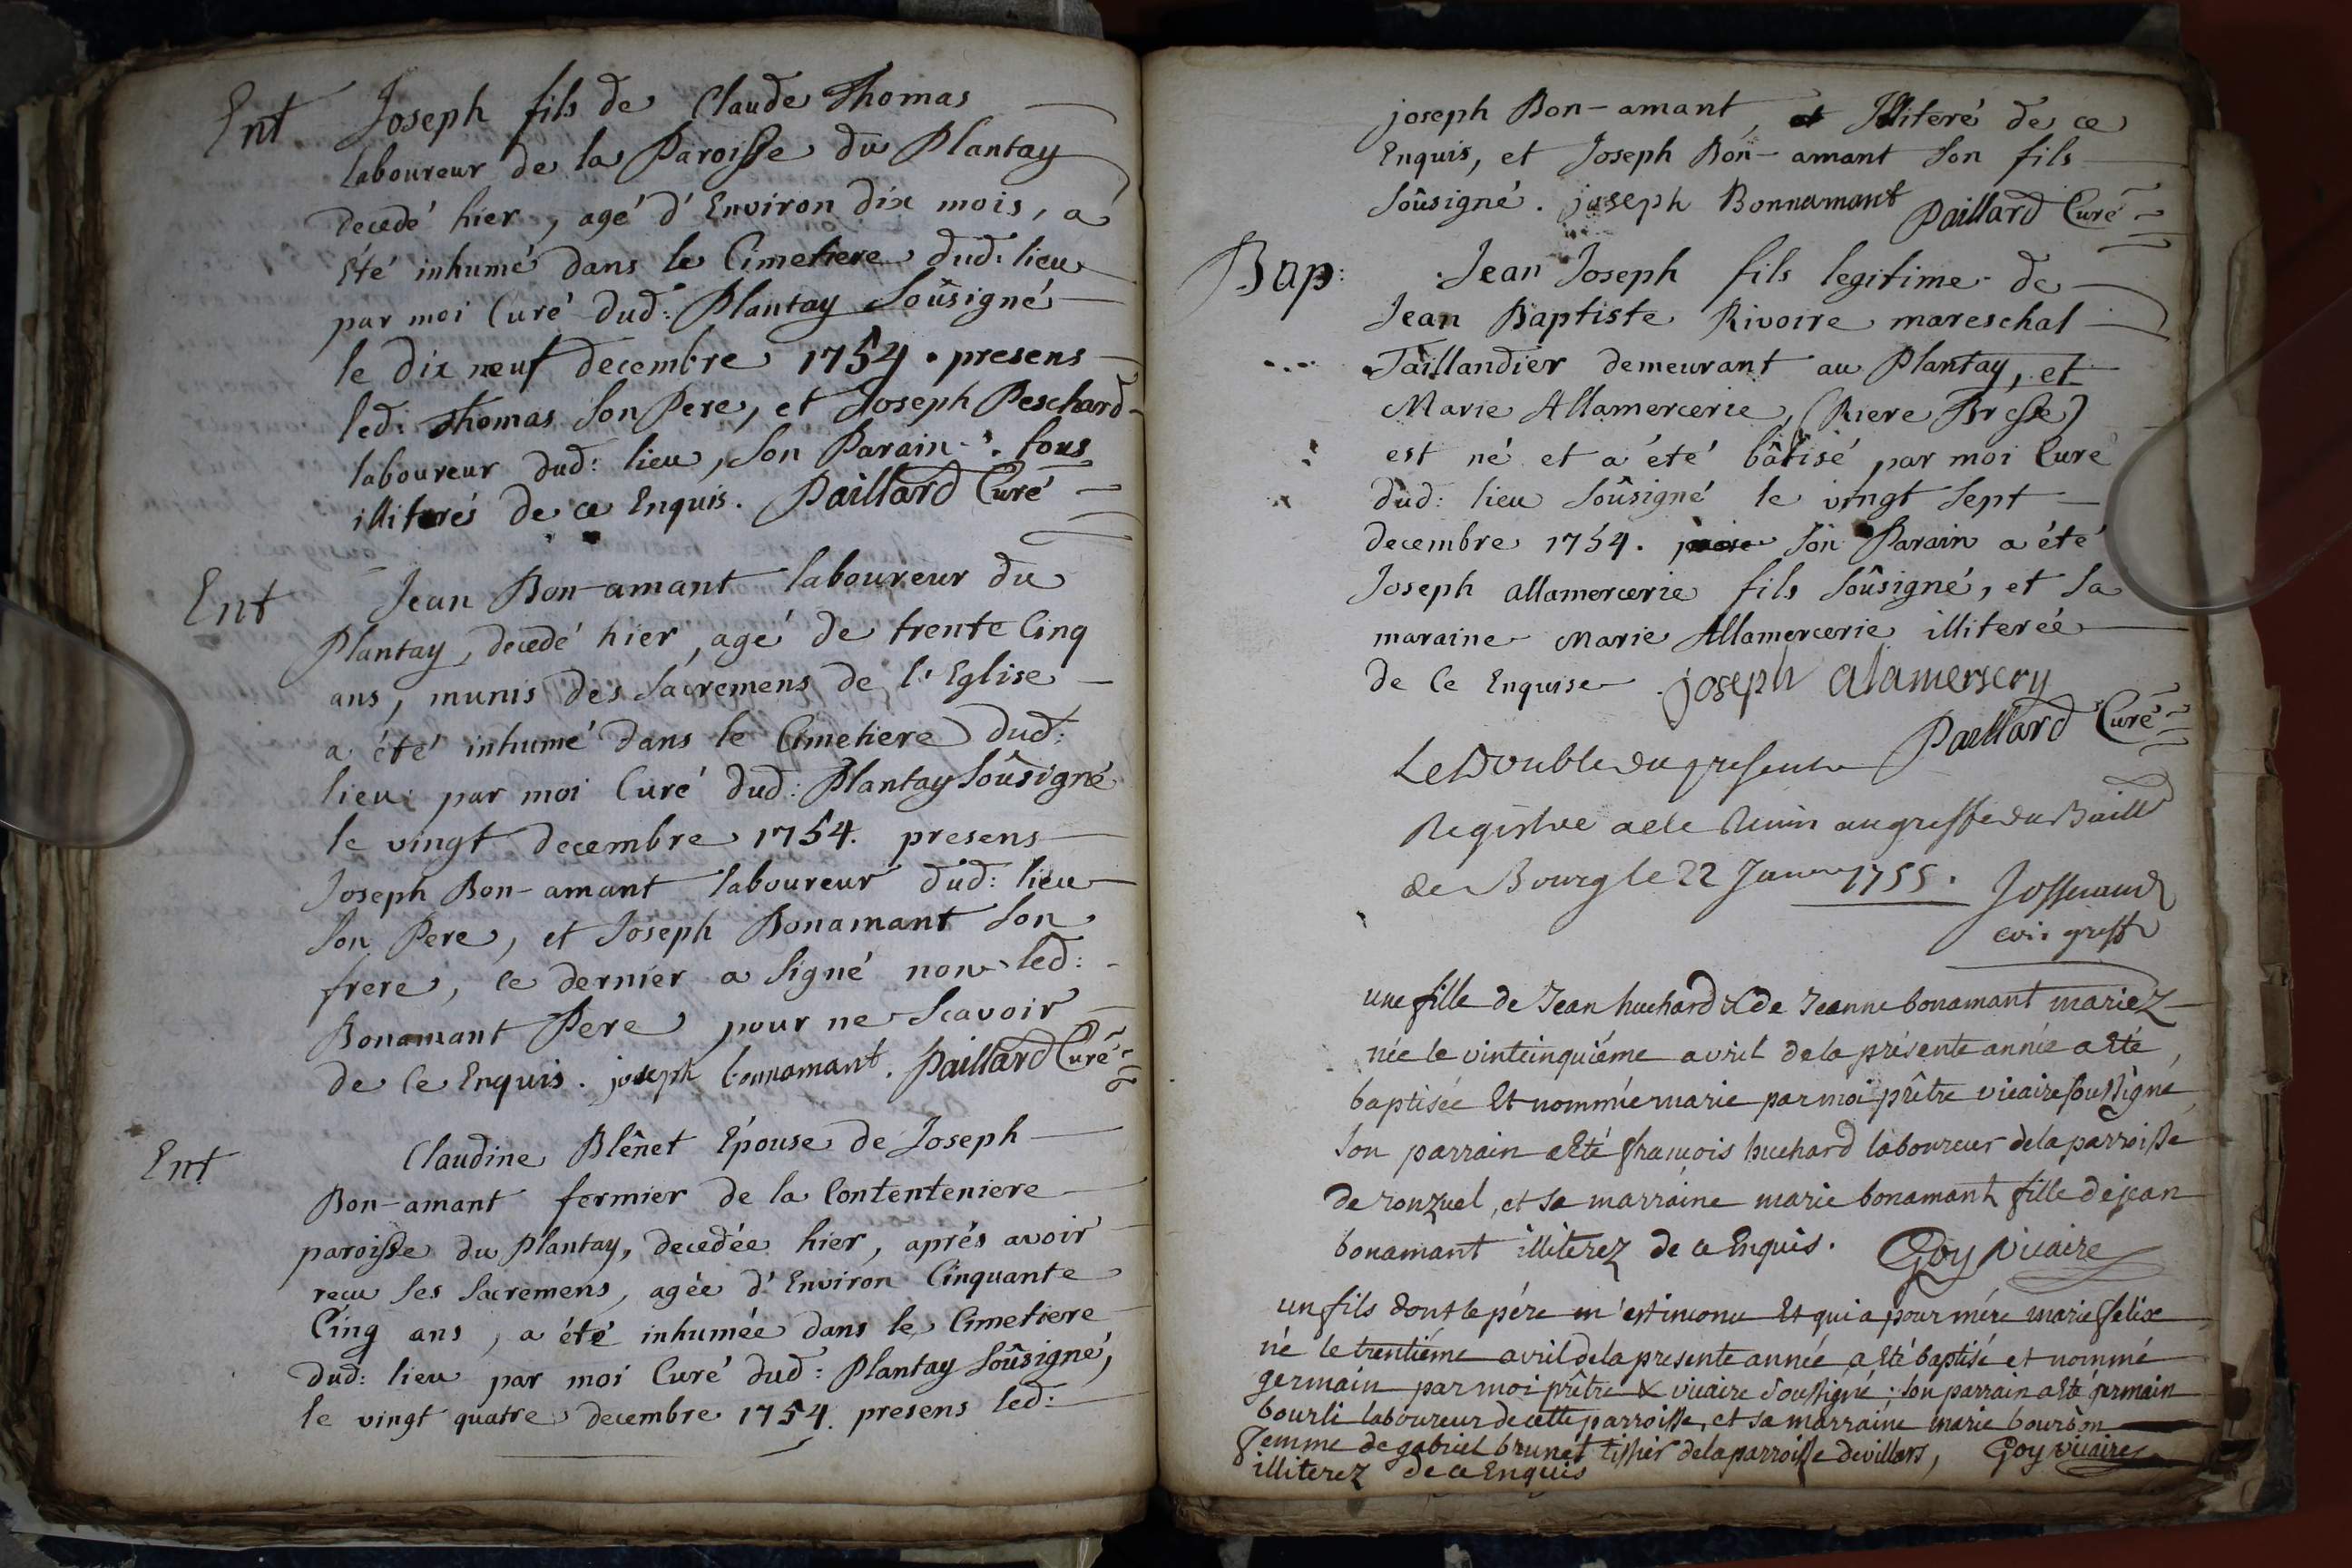 Ent Joseph fils de Claude Thomas
laboureur de la Paroisse du Plantay
decedé hier, agé d'Environ dix mois, a
été inhumé dans le Cimetiere dud: lieu
par moi Curé dud: Plantay soûsigné
le dix neuf decembre 1754. presens
led: Thomas son Pere, et Joseph Peschard
laboureur dud: lieu, son Parain. tous
illiterés de ce Enquis. Paillard Curé
Ent Jean Bon-amant laboureur du
Plantay, decedé hier, agé de trente Cinq
ans, munis des sacremens de l'Eglise
a été inhumé dans le Cimetiere dud:
lieu par moi Curé dud: Plantay soûsigné
le vingt decembre 1754. presens
Joseph Bon-amant laboureur dud: lieu
son Pere, et Joseph Bonamant son
frere, ce dernier a signé non led:
Bonamant Pere pour ne scavoir
de ce Enquis. joseph bonnamant. Paillard Curé
Ent Claudine Blênet Epouse de Joseph
Bon-amant fermier de la Contenteniere
paroisse du Plantay, decedée hier, aprés avoir
recu ses sacremens, agée d'Environ Cinquante
Cinq ans, a été inhumée dans le Cimetiere
dud: lieu par moi Curé dud: Plantay soûsigné,
le vingt quatre decembre 1754. presens led:
joseph Bon-amant, et Illiteré de ce
Enquis, et Joseph Bon-amant son fils
soûsigné. joseph Bonnamant Paillard Curé
Bap: Jean Joseph fils legitime de
Jean Baptiste Rivoire mareschal
Taillandier demeurant au Plantay, et
Marie Allamercerie, (Riere Bresse)
est né et a été bâtisé par moi Curé
dud: lieu soûsigné le vingt sept
decembre 1754. son Parain a été
Joseph allamercerie fils soûsigné, et sa
maraine Marie Allamercerie illiterée
de ce Enquise. joseph alamersery
Paillard Curé
Le Double du present
Registre a ete Remis au greffe du Baill
de Bourg le 22 Janv 1755.
greff
une fille de Jean huchard & de Jeanne bonamant mariez
née le vintcinquiéme avril de la présente année a eté
baptisée Et nommée marie par moi prêtre vicaire soussigné
son parrain a eté françois huchard laboureur de la parroisse
de ronzuel, et sa marraine marie bonamant fille de jean
bonamant illiterez de ce Enquis. Goy vicaire
un fils dont le pére m'est inconu Et qui a pour mére marie felix
né le trentiéme avril de la presente année a eté baptisé et nommé
germain par moi prêtre & vicaire soussigné; son parrain a eté germain
bourli laboureur de cette parroisse, et sa marraine marie bourbon
femme de gabriel brunet tissier de la parroisse de villars, Goy vicaire
illiterez de ce Enquis